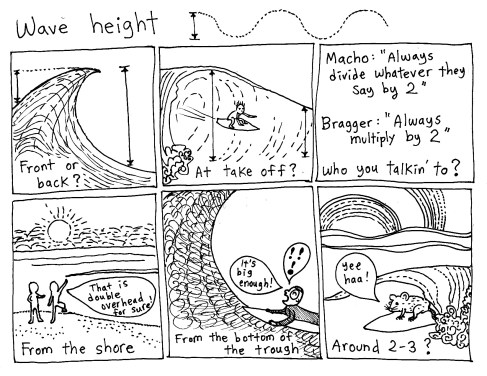 Wave height
Front or
back?
At take off?
Macho: "Always
divide whatever they
say by 2"
Bragger: "Always
multiply by 2"
Who you talkin' to?
That is
double
overhead
for sure!
From the shore
It's
big
enough!
!!!
From the bottom of
the trough
Yee
haa!
Around 2-3?